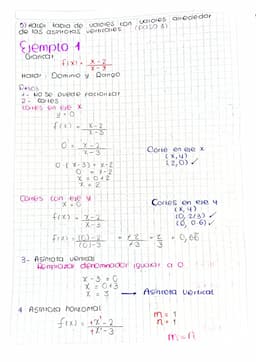 5) Hacer tabla de valores con valores alrededor
de las asintotas verticales (paso 3)
Ejemplo 1
Graficar
f(x) = x-2
x-3
Hallar: Dominio y Rango
Pasos
1- No se puede factorizar
2- Cortes
Cortes en eje x
y = 0
f(x) = x-2
x-3
0 = x-2
x-3
0 (x-3) = x-2
0 = x-2
x = 0+2
x = 2
Corte en eje x
(x,y)
(2,0) ✓
Cortes con eje y
x = 0
f(x) = x-2
x-3
f(x) = (0)-2 = +2 = 2 = 0,66
(0)-3 +3 3
Cortes en eje y
(x,y)
(0, 2/3) ✓
(0, 0.6) ✓
3- Asintota vertical
Remplazar denominador igualar a 0
x-3 = 0
x = 0+3
x = 3 → Asintota vertical
4 Asintota horizontal
f(x) = +x¹-2
+x¹-3
m = 1
n = 1
m = n